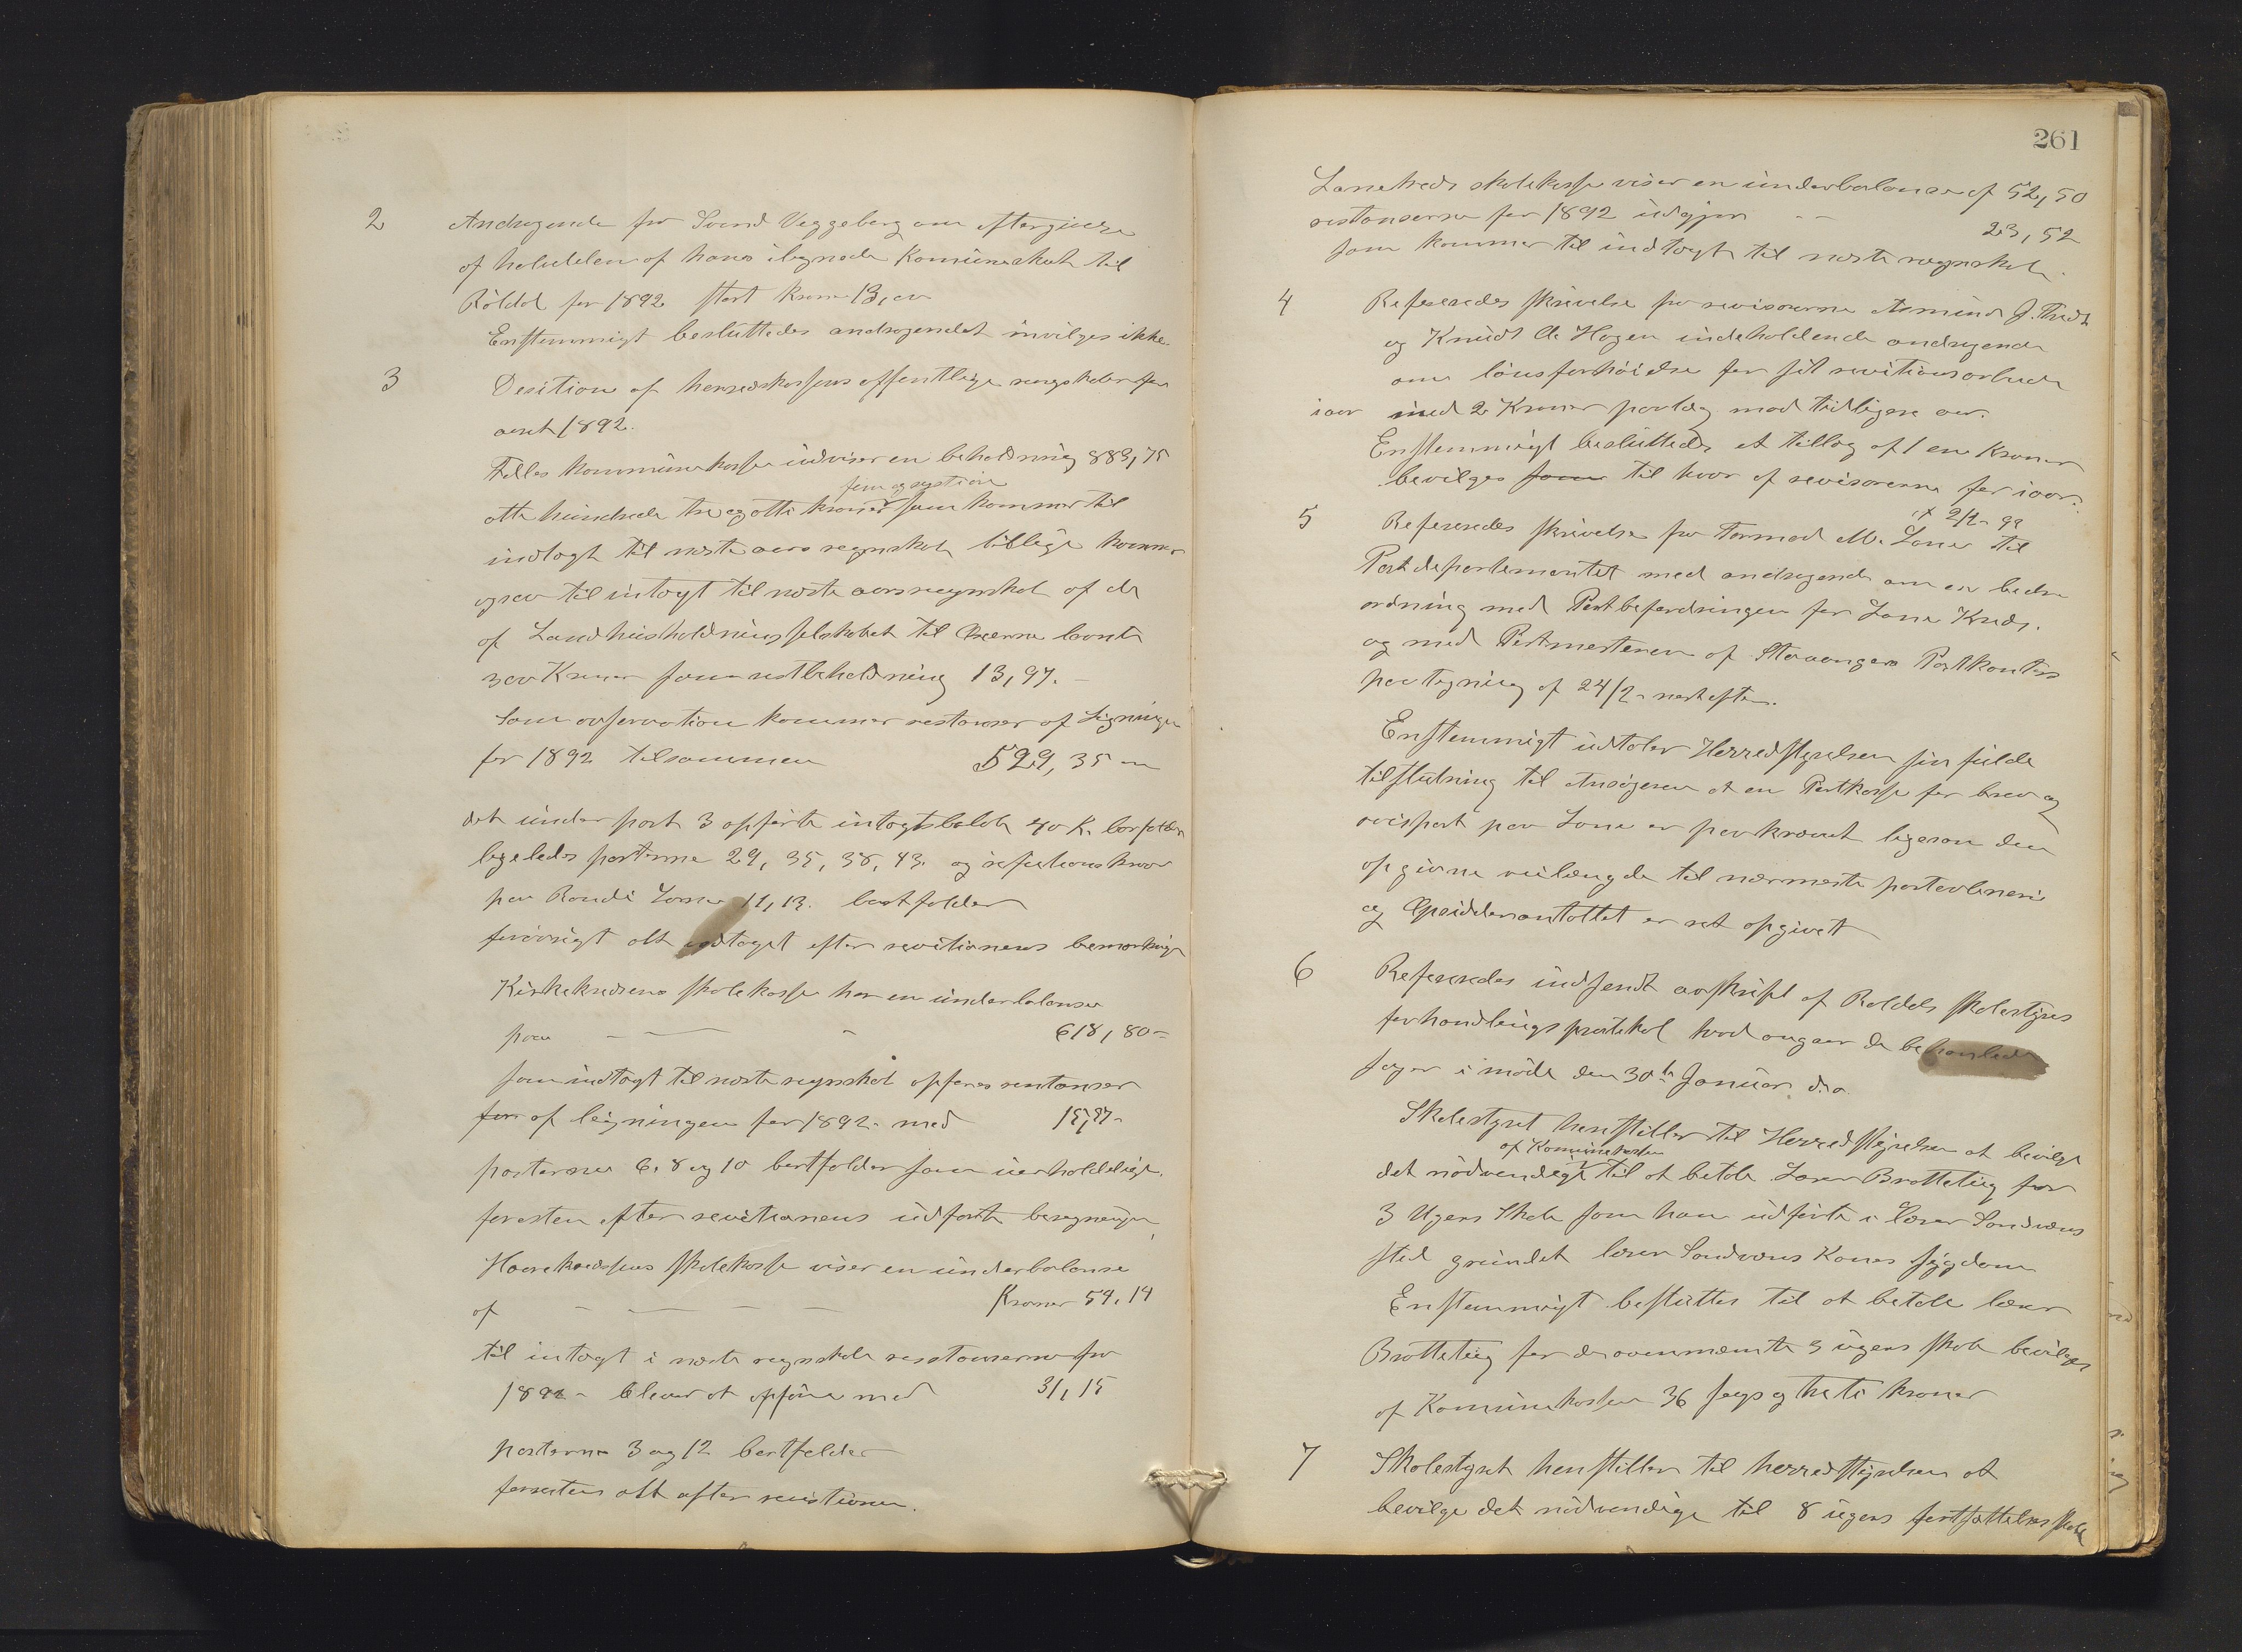 2 Andragende fra Svend Veggeberg om eftergivelse
af halvdelen af hans ilignede Komuneskat til
Röldal for 1892 stort kroner 13,00
Enstemmigt besluttedes andragendet invilges ikke.
3 Desition af herredskassens offentlige regskaber for
aaret 1892.
Felles kommunekasse udviser en beholdning 883,75
fem og sytti öre
otte hundrede tre og otti kroner som kommer til
indtægt til næste aars regnskab tillige kommer
ogsaa til intægt til næste aars regnskab af de
af Landhusholdningsselskabet til laante
300 Kroner som restbeholdning 13,97.-
Som observation kommer restanser af Ligningen
for 1892 tilsammen 529,35
det under post 3 opförte intægtsbelöb 40 K. borfalder
ligeledes posterne 29, 35, 38, 43. og
paa 11,13. bortfalder
forövrigt alt vedtaget efter revitionens bemerkninger
Kirkekredsens skolekasse har en underbalanse
paa - - - 618,80 =
som indtægt til næste regnskab opföres restanser
for af ligningen for 1892- med 15,97-
posterne 6, 8 og 10 bortfalder som uerholdelige.
foresten efter revitionens udförte beregninger
Haarekredsens skolekasse viser en underbalanse
af - - - - Kroner 59,14
til intægt i næste regnskab restanserne fra
1892- bliver at opföre med 31,15
posterne 3 og 12 bortfalder
foresten alt efter revistionen.
261
Lonekreds skolekasse viser en underbalanse af 52,50
restanserne for 1892 udgjör - - 23,52
som kommer til indtægt til næste regnskab.
4 Refereredes skrivelse fra revisorerne Asmund J.
og Knudt A. Hagen indeholdende andragende
om lönsforhöidse for sit revitionsarbeide
iaar med 2 Kroner paalæg mod tidligere aar.
Enstemmigt besluttedes et tillæg af 1 en Kroner
bevilges som til hver af revisorerne for iaar.
5 Refereredes skrivelse fra Tormod M. Lone til
Postdepartementet med andragende om en bedre
ordning med Postbefordringen for Lone Kreds.
og med Postmesteren af Stavangers Postkontors
paategning af 24/2- næstefter.
Enstemmigt udtaler Herredstyrelsen sin fulde
tilslutning til Ansögeren at en Postkasse for brev og
avispost paa Lone er paakrævet ligesom den
opgivne veilængde til nærmeste postaabneri
og antallet er ret opgivett
6 Refereredes indsendt avskrift af Roldals skolestyres
forhandlingsprotokol hvad angaar de behandlede
sager i möde den 30te Januar d.a.
Skolestyret henstiller til Herredstyrelsen at bevilge
af Komunekassen
det nödvendige til at betale Lærer Bratteteig for
3 Ugers Skole som han udförte i lærer Sandvens
sted grundet lærer Sandvens Kones sygdom
Enstemmigt besluttes til at betale lærer
Bratteteig for de ovennævnte 3 ugers skole bevilges
af Komunekassen 36 segs og treti kroner
7 Skolestyret henstiller til herredstyrelsen at
bevilge det nödvendige til 8 ugers fortsættelses skole